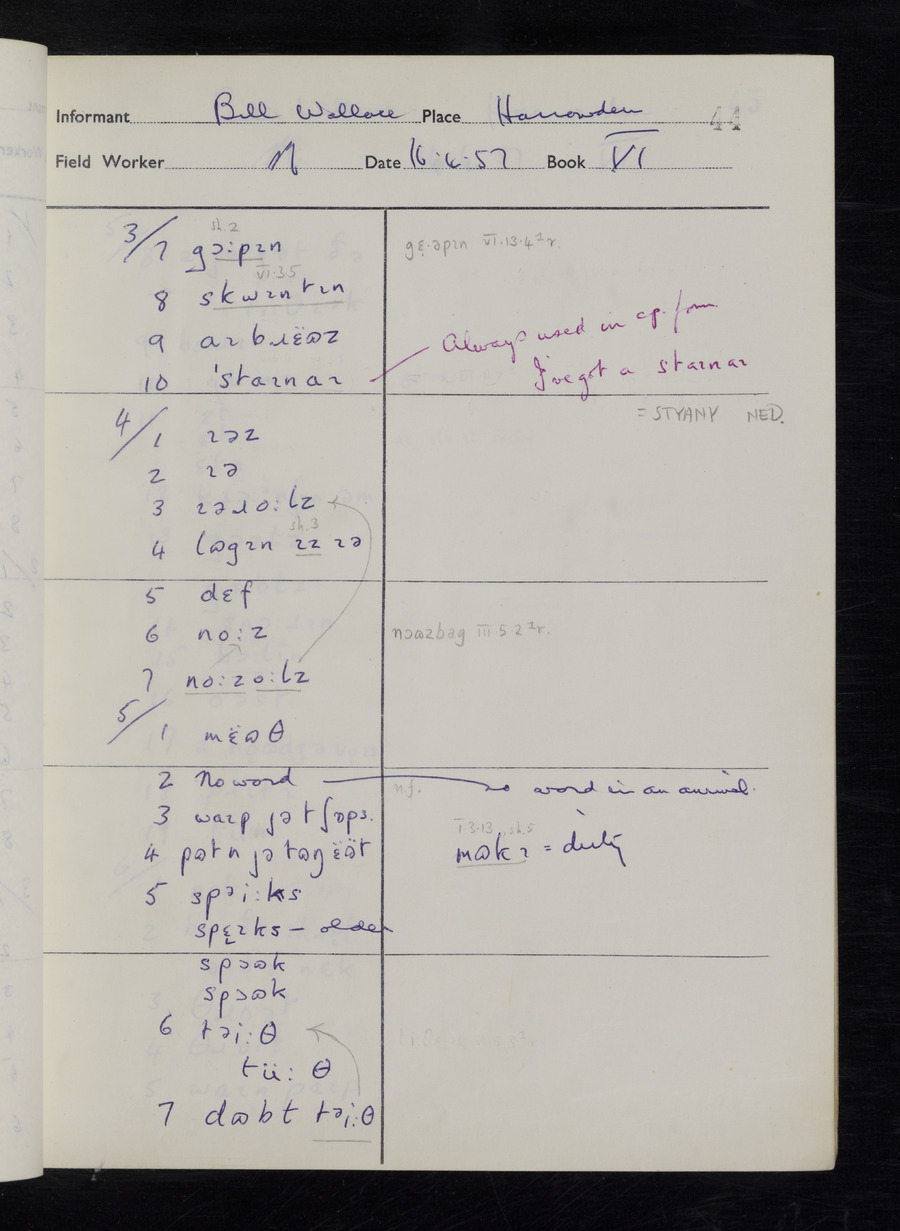 Informant Bill Wallace Place Harrowden 44
Field Worker N Date 16·4·57 Book VI
sh.2
3/7 gɔːpɪn gɛ·əpɪn VI·13·4²r.
VI·3·5
8 skwɪntɪn
9 aɪbɹɛ̈ɷz
10 ˈstaɪnaɪ Always used in cp. form
I've got a staɪnaɪ
= STYANY NED.
4/1 ɪəz
2 ɪə
3 ɪəɹoːlz
sh.3
4 lɷgɪn ɪz ɪə
5 dɛf
6 noːz nɔɷzbag III·5·2²r.
7 noːzoːlz
5/1 mɛ̈ɷθ
2 No word n.f. no word in an animal.
3 waɪp jə tʃɒps.
I·3·13, sh.5
4 pɷt n jə tɷŋ ɛ̈ɷ̈t mɷkɪ = dirty
5 spəiːks
spɛ̝ɪks – older
spɔɷk
spɔɷk
6 təiːθ
tïiːθ
7 dɷbt təiːθ